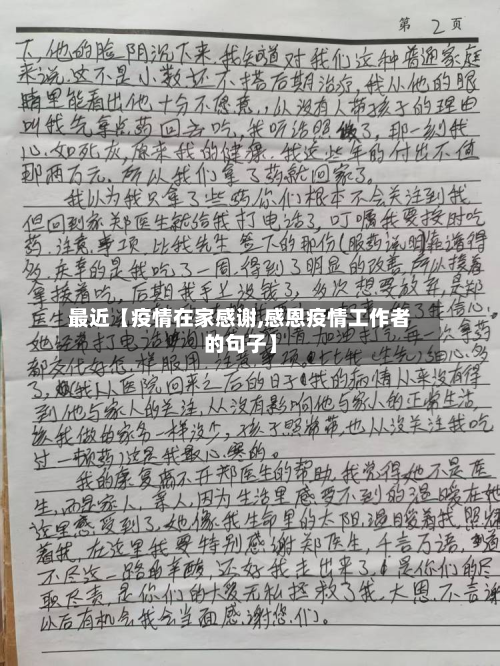 第 2 页
下,他的脸阴沉下来,我知道对我们这种普通家庭
来说这不是小数还不搭后期治疗,我从他的眼
睛里能看出他十分不愿意,以没有人带孩子的理由
叫我先拿点药回去吃,我听话照做了,那一刻我
心如死灰,原来我的健康、我这些年的付出不值
那两万元,所以我们拿了药就回家了。
我以为我只拿了些药你们根本不会关注到我
但回到家郑医生就给我打电话了,叮嘱我要按时吃
药,注意事项,比我先生签下的那份(服药说明)解读得
多,庆幸的是我吃了一周,得到了明显的改善,所以接着
拿接着吃,后期我手上没钱了,多次想要放弃,是郑
医生
给了我信心,
最近【疫情在家感谢,感恩疫情工作者
的句子】
她经常打电话
每一次拿药
都交代好怎样服用,注意事项
细心。
了,我从医院回来之后的日子,我的病情从来没有得
到他与家人的关注,从没有影响他与家人的正常生活,
该我做的家务一样没少,孩子照常带,也从没关注我吃
过一顿药,这是我最心寒的。
我的康复离不开郑医生的帮助,我觉得她不是医
生,而是家人,亲人,因为生活里感受不到的温暖在她
这里感受到了,她像我生命里的太阳,温暖着我,照耀
着我,在这里我要特别感谢郑医生,千言万语,道
不尽这一路的辛酸,还好我走出来了,是你们的尽
职尽责,是你们的大爱无私拯救了我,大恩不言谢
以后有机会我会当面感谢您们。